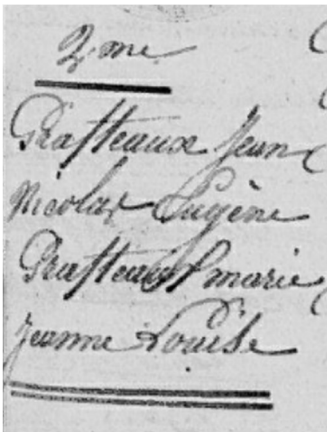 2me
Prafteaux Jean
Nicolas Eugène
Prafteaux marie
Jeanne Louise